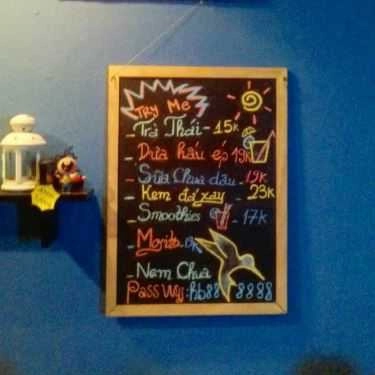 Try Me
- Trà Thái - 15k
- Dưa hấu ép 19k
- Sữa Chua dâu - 19k
- Kem đá xay - 23k
- Smoothies - 17k
- Mojito
- Nem Chua
Pass wifi: hb88 8888